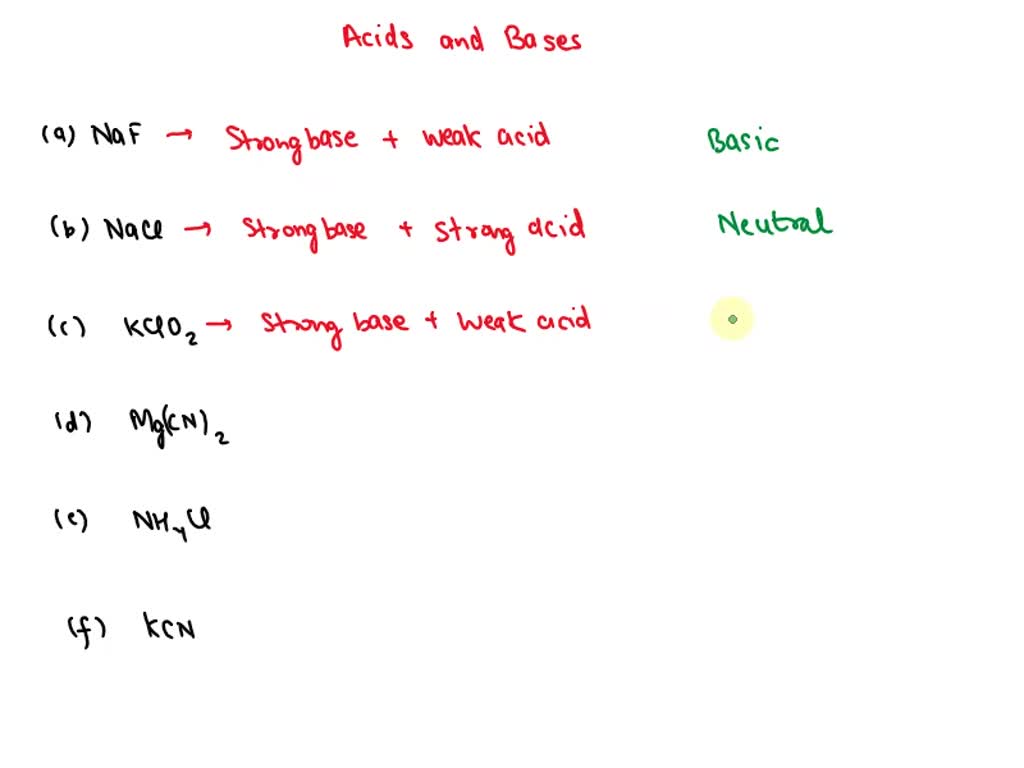 Acids and Bases
(a) NaF → Strong base + weak acid Basic
(b) NaCl → Strong base + strong acid Neutral
(c) KClO2 → Strong base + weak acid
(d) Mg(CN)2
(e) NH4Cl
(f) KCN